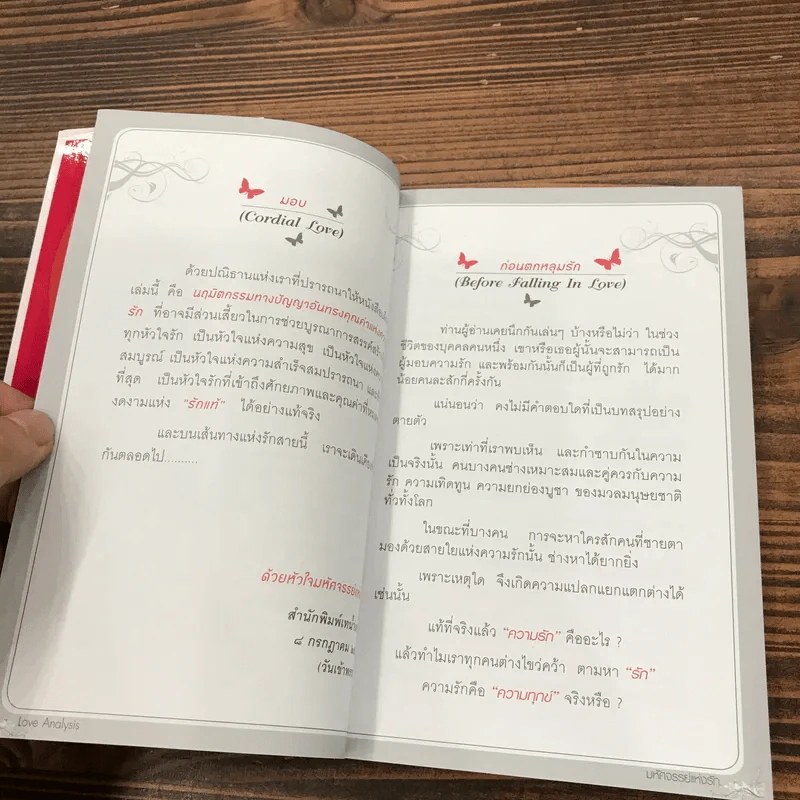 มอบ
(Cordial Love)
ด้วยปณิธานแห่งเราที่ปรารถนาให้หนังสือ
เล่มนี้ คือ นฤมิตกรรมทางปัญญาอันทรงคุณค่าแห่ง
รัก ที่อาจมีส่วนเสี้ยวในการช่วยบูรณาการสรรค์สร้าง
ทุกหัวใจรัก เป็นหัวใจแห่งความสุข เป็นหัวใจแห่ง
สมบูรณ์ เป็นหัวใจแห่งความสำเร็จสมปรารถนา
ที่สุด เป็นหัวใจรักที่เข้าถึงศักยภาพและคุณค่าที่
งดงามแห่ง "รักแท้" ได้อย่างแท้จริง
และบนเส้นทางแห่งรักสายนี้ เราจะเดิน
กันตลอดไป.........
ด้วยหัวใจมหัศจรรย์
สำนักพิมพ์
๘ กรกฎาคม
(วันเข้า
Love Analysis
ก่อนตกหลุมรัก
(Before Falling In Love)
ท่านผู้อ่านเคยนึกกันเล่นๆ บ้างหรือไม่ว่า ในช่วง
ชีวิตของบุคคลคนหนึ่ง เขาหรือเธอผู้นั้นจะสามารถเป็น
ผู้มอบความรัก และพร้อมกันนั้นก็เป็นผู้ที่ถูกรัก ได้มาก
น้อยคนละสักกี่ครั้งกัน
แน่นอนว่า คงไม่มีคำตอบใดที่เป็นบทสรุปอย่าง
ตายตัว
เพราะเท่าที่เราพบเห็น และก็ทราบกันในความ
เป็นจริงนั้น คนบางคนช่างเหมาะสมและคู่ควรกับความ
รัก ความเทิดทูน ความยกย่องบูชา ของมวลมนุษยชาติ
ทั่วทั้งโลก
ในขณะที่บางคน การจะหาใครสักคนที่ชายตา
มองด้วยสายใยแห่งความรักนั้น ช่างหาได้ยากยิ่ง
เพราะเหตุใด จึงเกิดความแปลกแยกแตกต่างได้
เช่นนั้น
แท้ที่จริงแล้ว "ความรัก" คืออะไร ?
แล้วทำไมเราทุกคนต่างไขว่คว้า ตามหา "รัก"
ความรักคือ "ความทุกข์" จริงหรือ ?
มหัศจรรย์แห่งรัก